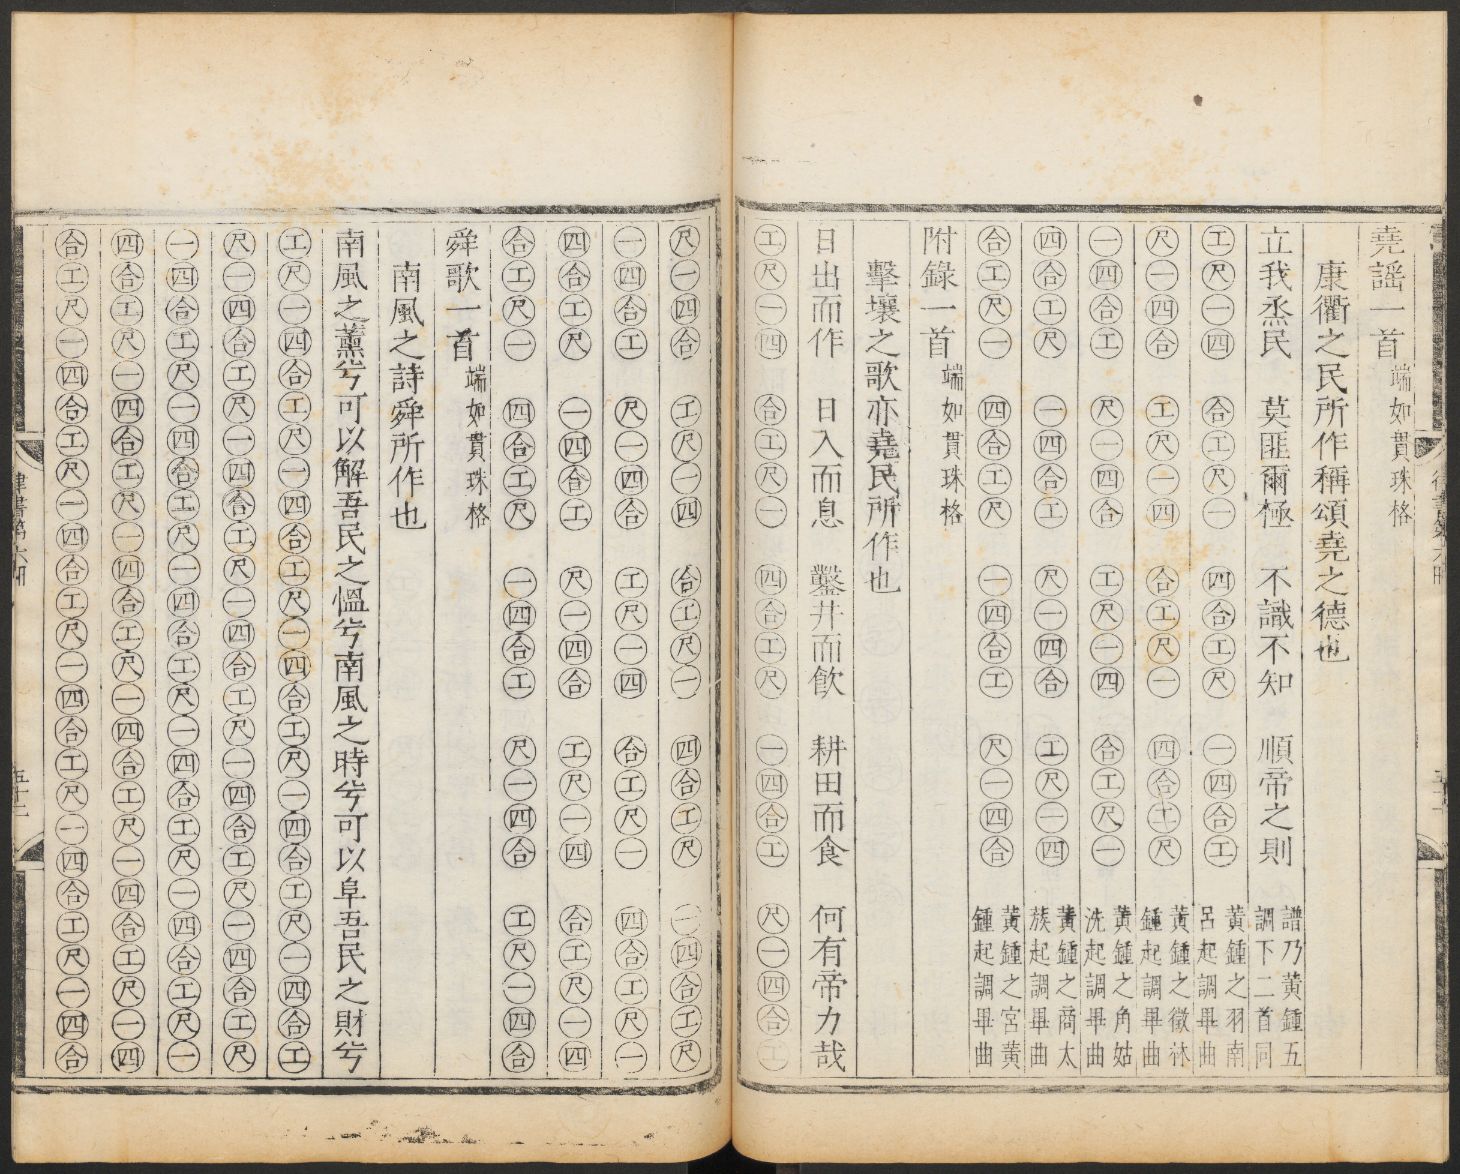 堯謠一首 端如貫珠格
康衢之民所作稱頌堯之德也
立我烝民 莫匪爾極 不識不知 順帝之則 譜乃黃鍾五調下二首同
工尺一四 合工尺一 四合工尺 一四合工 黃鍾之羽南呂起調畢曲
尺一四合 工尺一四 合工尺一 四合工尺 黃鍾之徵林鍾起調畢曲
一四合工 尺一四合 工尺一四 合工尺一 黃鍾之角姑洗起調畢曲
四合工尺 一四合工 尺一四合 工尺一四 黃鍾之商太族起調畢曲
合工尺一 四合工尺 一四合工 尺一四合 黃鍾之宮黃鍾起調畢曲
附錄一首 端如貫珠格
擊壤之歌亦堯民所作也
日出而作 日入而息 鑿井而飲 耕田而食 何有帝力哉
工尺一四 合工尺一 四合工尺 一四合工 尺一四合工
尺一四合 工尺一四 合工尺一 四合工尺 一四合工尺
一四合工 尺一四合 工尺一四 合工尺一 四合工尺一
四合工尺 一四合工 尺一四合 工尺一四 合工尺一四
合工尺一 四合工尺 一四合工 尺一四合 工尺一四合
舜歌一首 端如貫珠格
南風之詩舜所作也
南風之薰兮可以解吾民之慍兮南風之時兮可以阜吾民之財兮
工尺一四合工尺一四合工尺一四合工尺一四合工尺一四合工
尺一四合工尺一四合工尺一四合工尺一四合工尺一四合工尺
一四合工尺一四合工尺一四合工尺一四合工尺一四合工尺一
四合工尺一四合工尺一四合工尺一四合工尺一四合工尺一四
合工尺一四合工尺一四合工尺一四合工尺一四合工尺一四合
律書第六冊